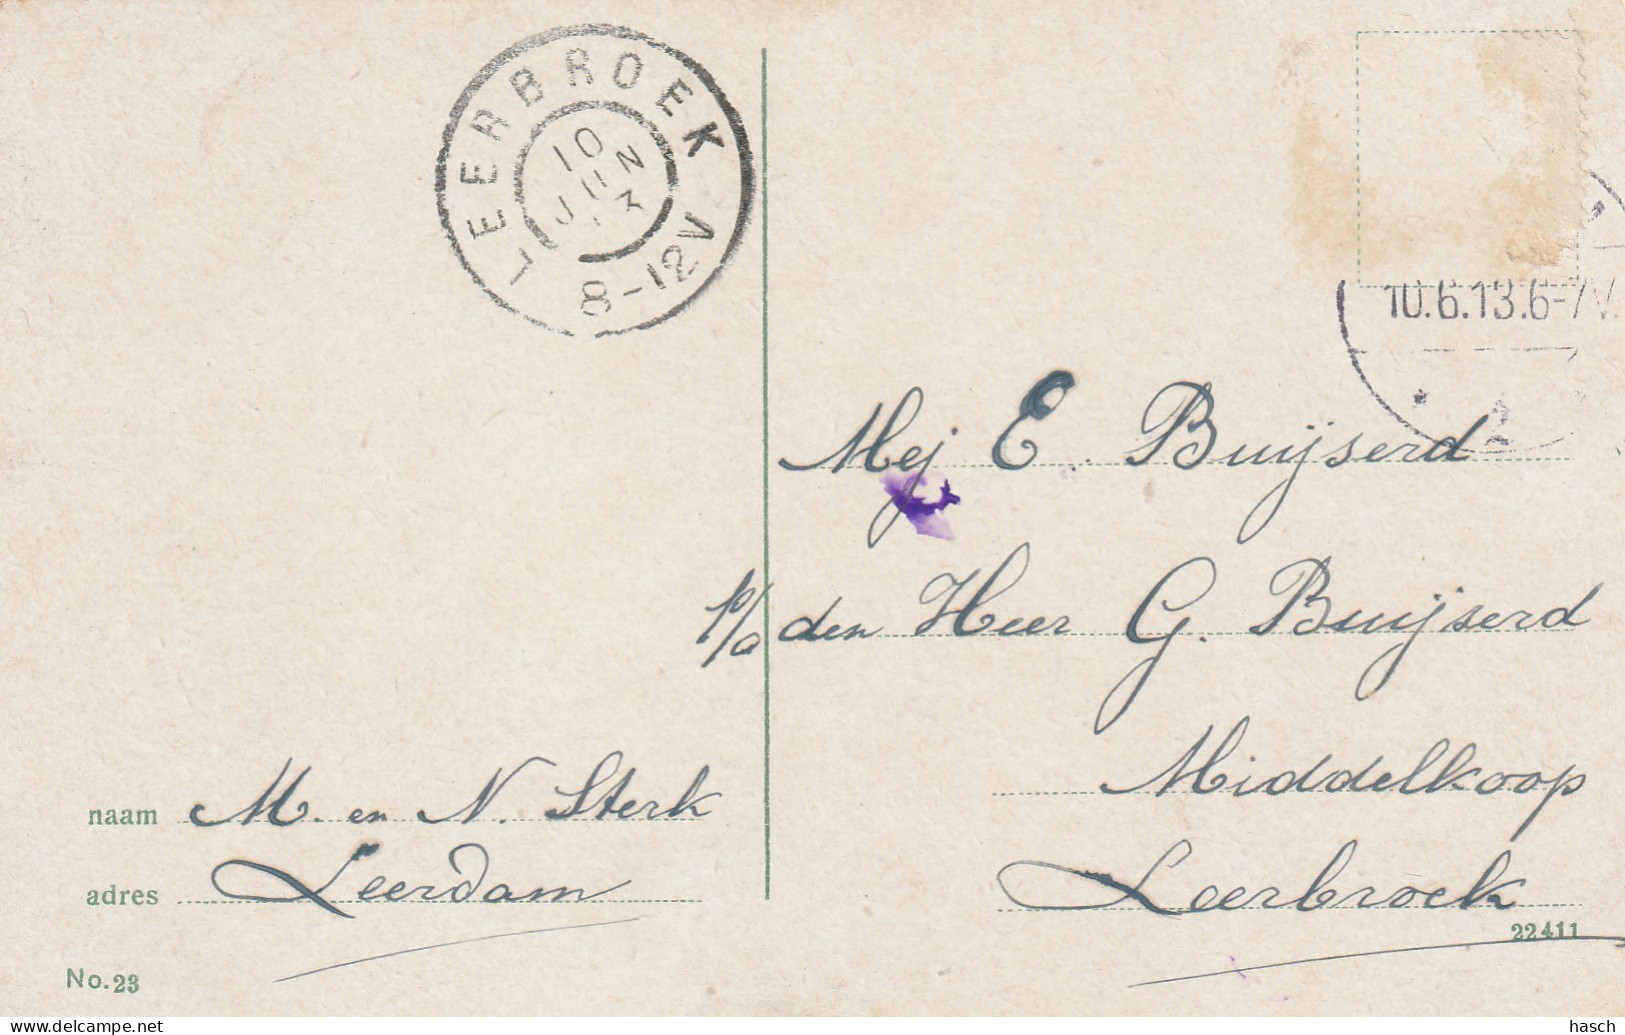 LEERBROEK
10
JUN
13
8-12V
10.6.13.6-7V.
Mej E. Buijserd
p/a den Heer G. Buijserd
Middelkoop
Leerbroek
22411
naam M. en N. Sterk
adres Leerdam
No. 23
www.delcampe.net
hasch